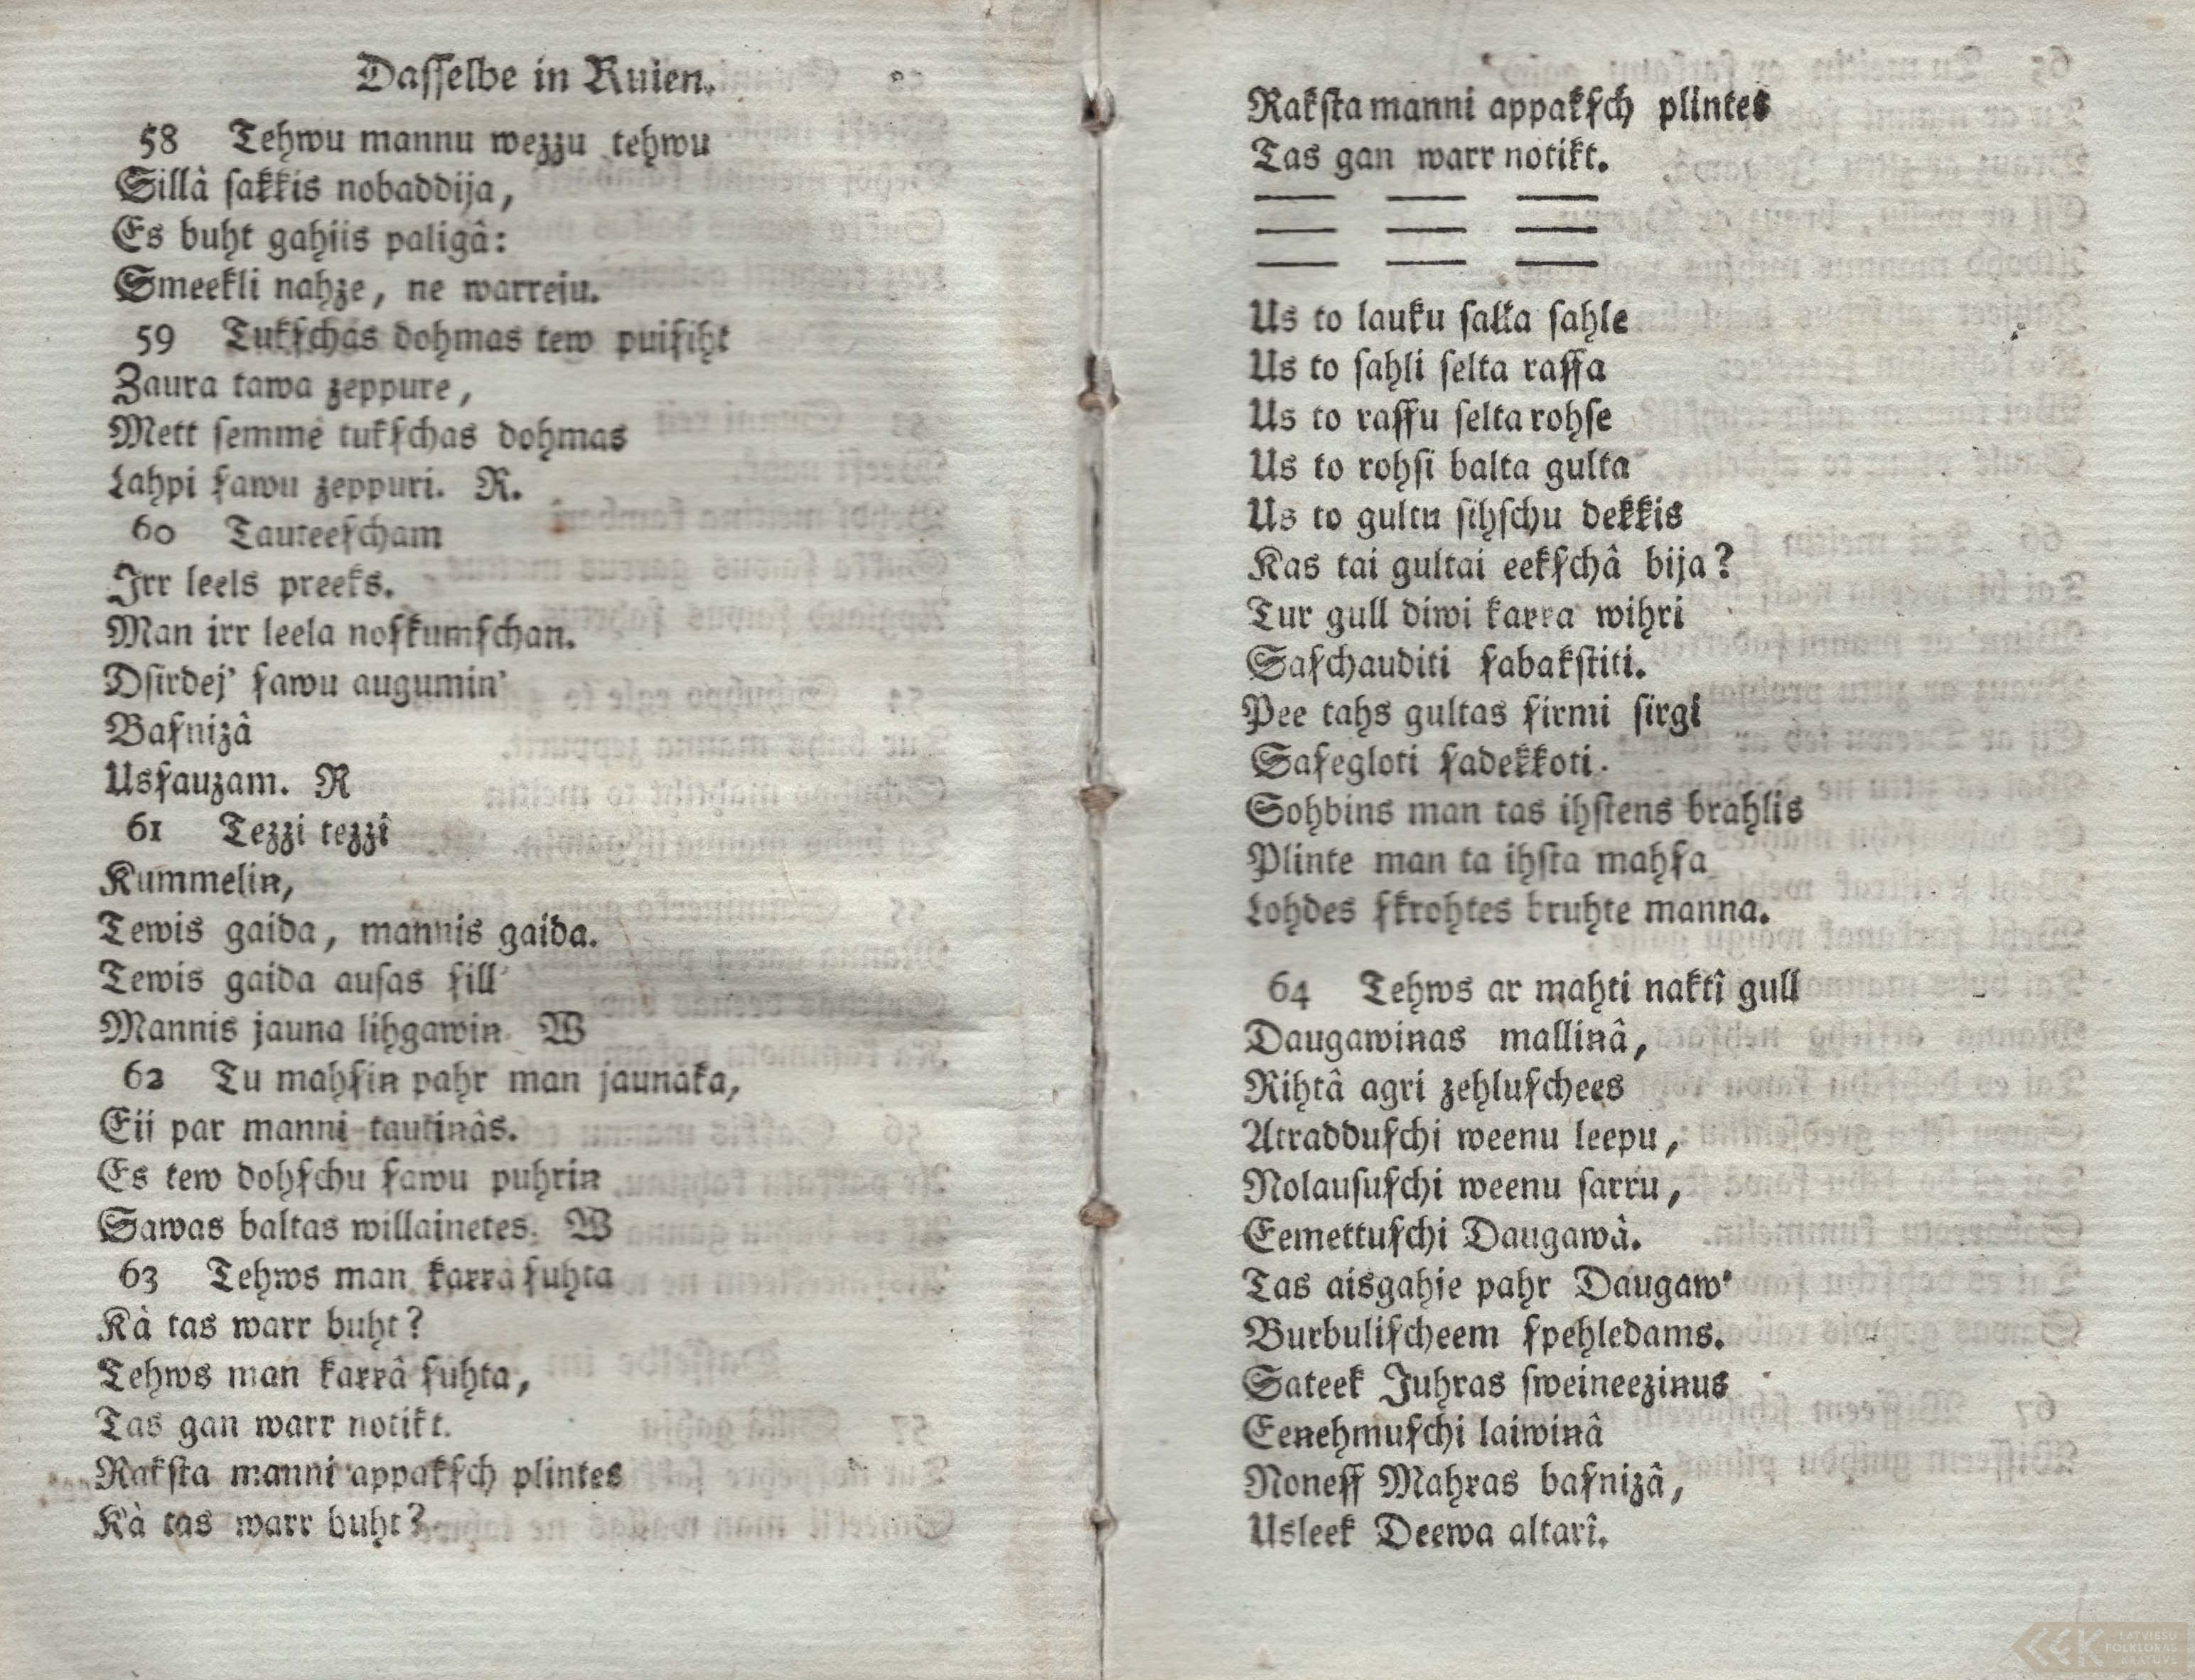 Daſſelbe in Ruien.
58 Tehwu mannu wezzu tehwu
Sillâ ſakkis nobaddija,
Es buht gahjis paligâ:
Smeekli nahze, ne warreju.
59 Tukſchas dohmas tew puiſiht
Zaura tawa zeppure,
Mett ſemmê tukſchas dohmas
Lahpi ſawu zeppuri. R.
60 Tauteeſcham
Irr leels preeks.
Man irr leela noſkumſchan.
Dſirdej' ſawu augumin'
Baſnizâ
Usſauzam. R
61 Tezzi tezzi
Kummelin,
Tewis gaida, mannis gaida.
Tewis gaida auſas ſill'
Mannis jauna lihgawin W
62 Tu mahſin pahr man jaunaka,
Eij par manni tautinâs.
Es tew dohſchu ſawu puhrin
Sawas baltas willainetes. W
63 Tehws man karrâ ſuhta
Kà tas warr buht?
Tehws man karrâ ſuhta,
Tas gan warr notikt.
Rakſta manni appakſch plintes
Kà tas warr buht?
Rakſta manni appakſch plintes
Tas gan warr notikt.
— — —
— — —
— — —
Us to lauku ſalla ſahle
Us to ſahli ſelta raſſa
Us to raſſu ſelta rohſe
Us to rohſi balta gulta
Us to gultu ſihſchu dekkis
Kas tai gultai eekſchâ bija?
Tur gull diwi karra wihri
Saſchauditi ſabakſtiti.
Pee tahs gultas ſirmi ſirgi
Saſegloti ſadekkoti.
Sohbins man tas ihſtens brahlis
Plinte man ta ihſta mahſa
Lohdes ſkrohtes bruhte manna.
64 Tehws ar mahti naktî gull
Daugawinas mallinâ,
Rihtâ agri zehluſchees
Atradduſchi weenu leepu,
Nolauſuſchi weenu ſarru,
Eemettuſchi Daugawâ.
Tas aisgahje pahr Daugaw'
Burbuliſcheem ſpehledams.
Sateek Juhras ſweineezinus
Eenehmuſchi laiwinâ
Noneſſ Mahras baſnizâ,
Usleek Deewa altarî.
LATVIEŠU
FOLKLORAS
KRĀTUVE